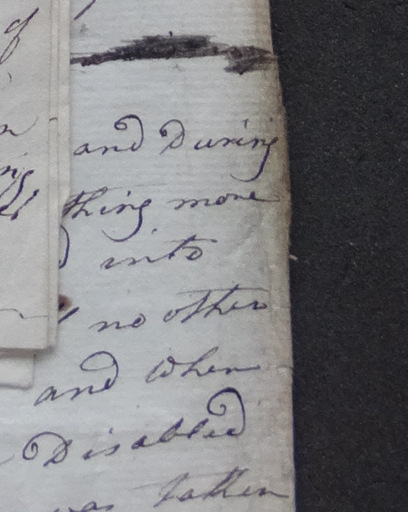 of
and During
thing more
into
no other
and when
Disabled
was taken